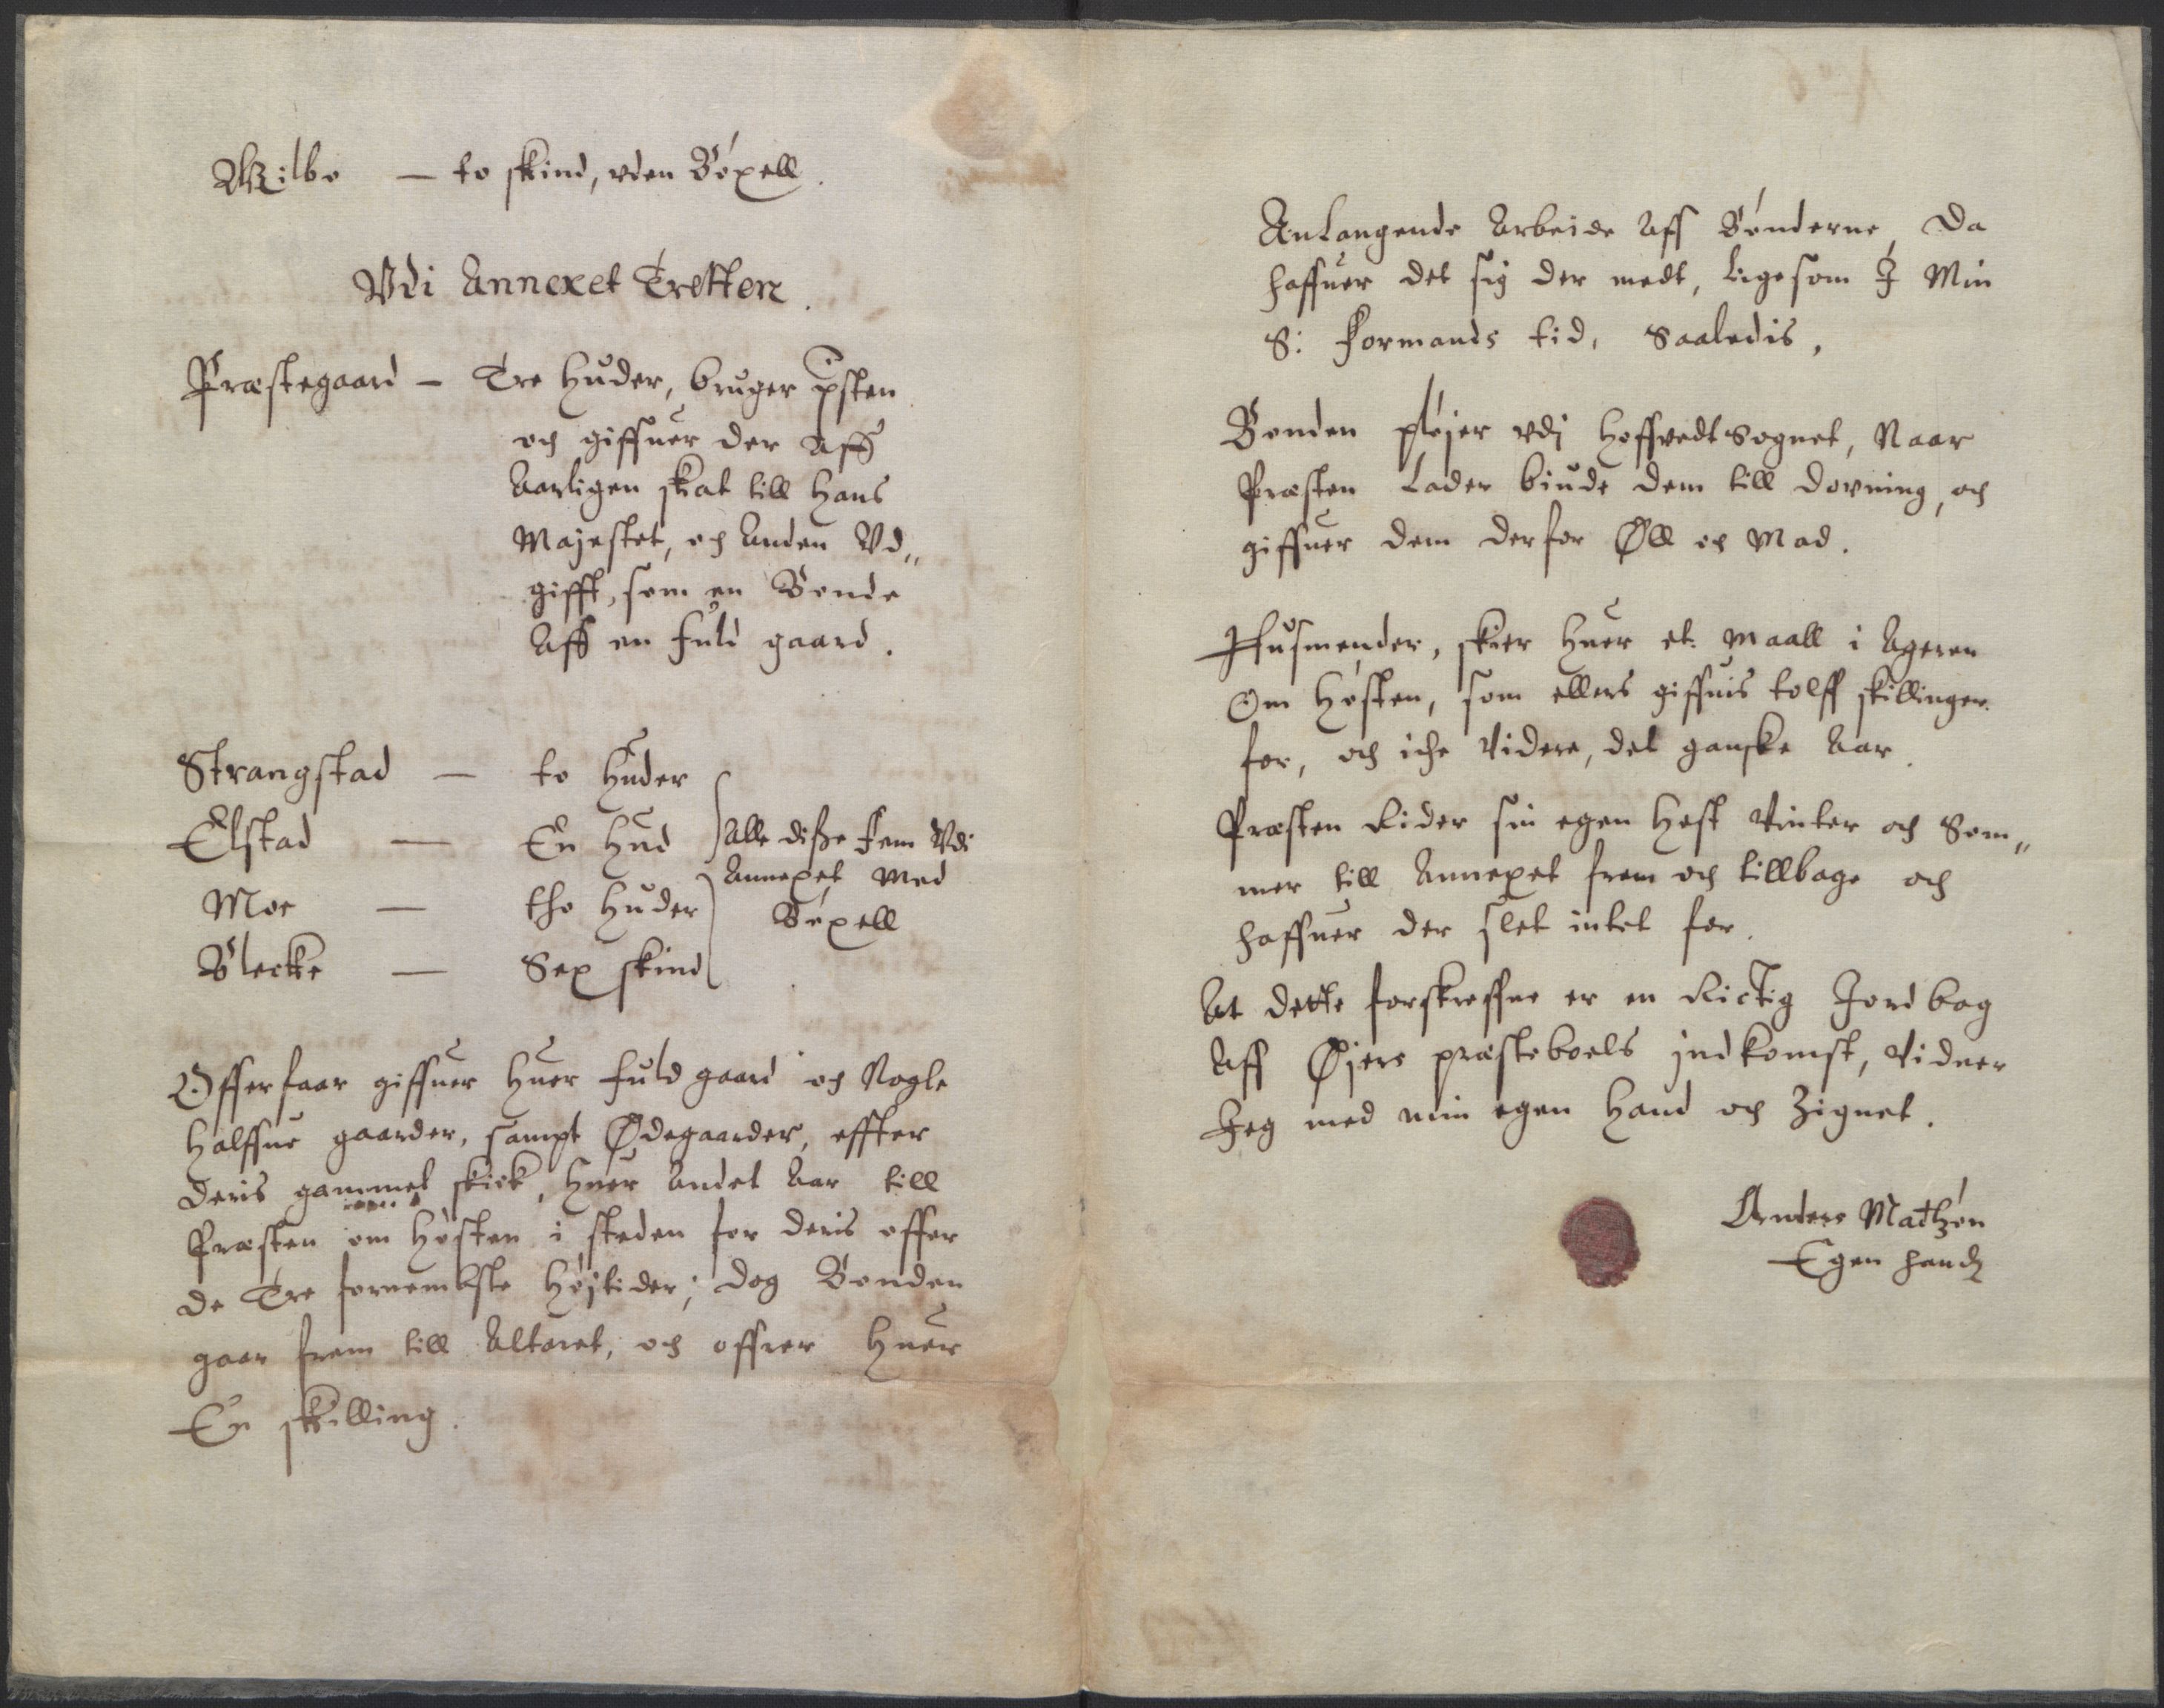 Wilbo — to skind, vden Böxell.
Vdi Annexet Tretten.
Præstegaard — Tre huder, bruger
och giffuer der aff
Aarligen skat till Hans
Majestet, och anden Vd„
gifft, som en Bonde
Aff en fuld gaard.
Strangstad — to huder
Elstad — En hud
Alle disse fem Vdi
Moe — tho huder
Annexet med
Böxell
Blecke — Sex skind
Offerfaar giffuer huer fuld gaard och Nogle
halffue gaarder, sampt Ødegaarder, effter
deris gammel skick, huer andet Aar till
Præsten om hösten i steden for deris offer
de Tre fornembste höjtider; dog Bonden
gaar frem till Altaret, och offrer huer
En skilling.
Anlangende Arbeide aff Bönderne, da
haffuer det sig der medt, ligesom I Min
S: Formands tid, Saaledis,
Bonden pløjer vdj hoffvedt Sognet, Naar
Præsten Lader biude dem till dovning, och
giffuer dem derfor Øll och Mad.
Husmender, skier huer et maall i Ageren
Om hösten, som ellers giffuis tolff skillinger
for, och iche videre, det ganske Aar.
Præsten Rider sin egen hest Vinter och Som„
mer till Annexet frem och tillbage och
haffuer der slet intet for.
At dette forskreffne er en Rictig Jordbog
Aff Øjers præsteboels jndkomst, vidner
Jeg med min egen hand och Zignet.
Anders Mathzön
Egen handt